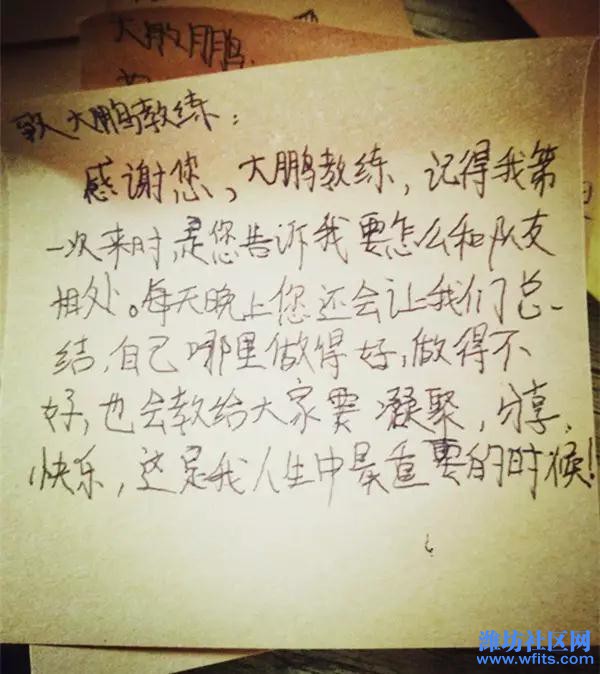 大鹏
致大鹏教练：
感谢您，大鹏教练，记得我第
一次来时，是您告诉我要怎么和队友
相处。每天晚上您还会让我们总
结，自己哪里做得好，做得不
好，也会教给大家要凝聚，分享，
快乐，这是我人生中最重要的时候！
潍坊社区网
www.wfits.com